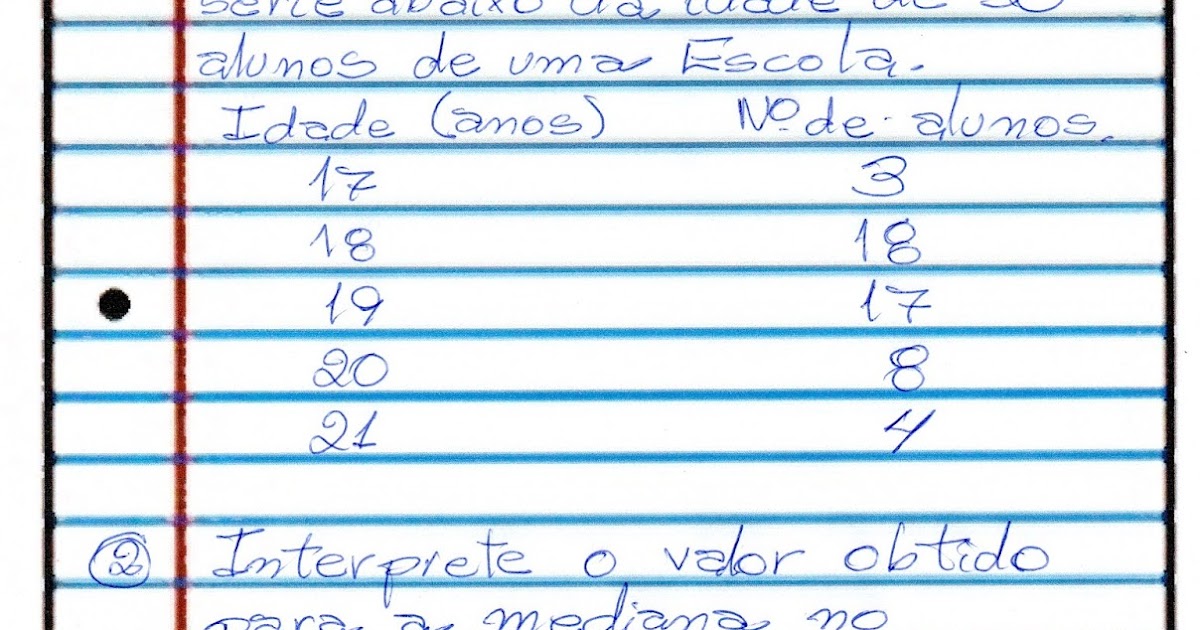 série abaixo da idade de 50
alunos de uma Escola.
Idade (anos) Nº de alunos.
17 3
18 18
19 17
20 8
21 4
② Interprete o valor obtido
para a mediana no